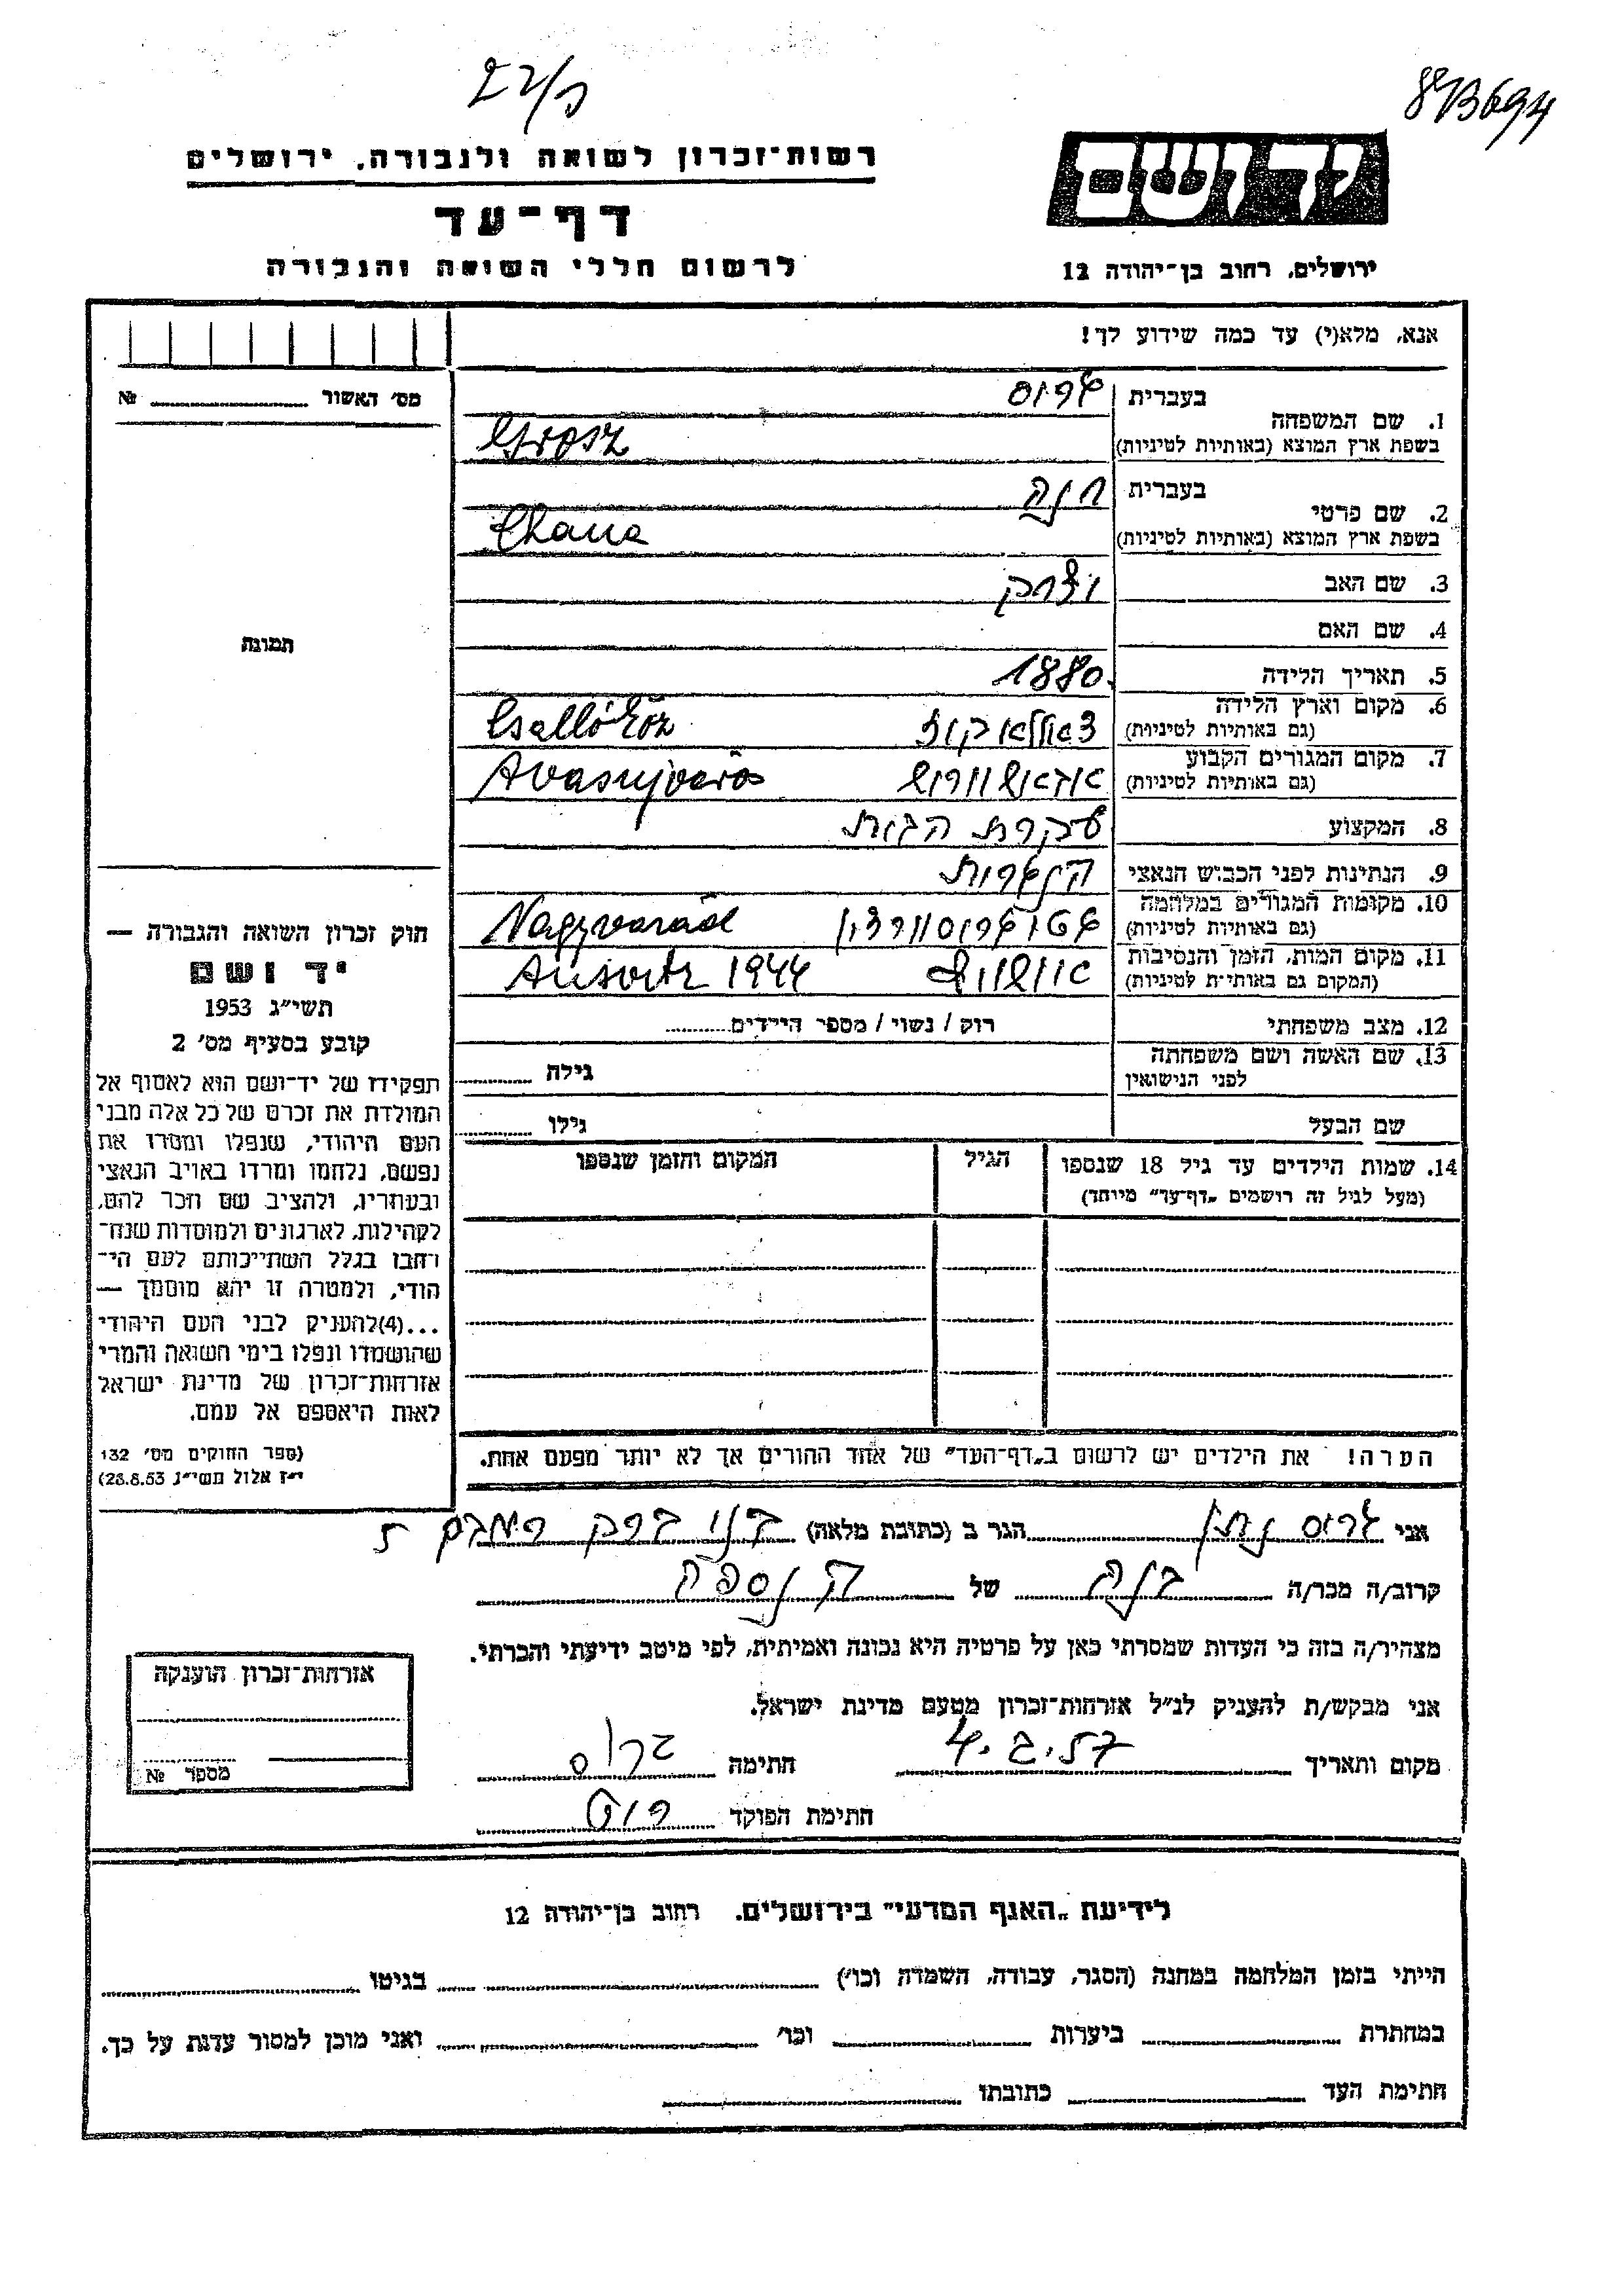 22/ר
873694
רשות־זכרון לשואה ולגבורה, ירושלים
יד ושם
דף־עד
לרשום חללי השואה והגבורה
ירושלים, רחוב בן־יהודה 12
אנא, מלא(י) עד כמה שידוע לך!
מס' האשור № 
1. שם המשפחה
בעברית גרוס
בשפת ארץ המוצא (באותיות לטיניות) Grosz
2. שם פרטי
בעברית חנה
בשפת ארץ המוצא (באותיות לטיניות) Chana
3. שם האב
4. שם האם
5. תאריך הלידה 1880.
6. מקום וארץ הלידה
(גם באותיות לטיניות) Csallóköz
7. מקום המגורים הקבוע
(גם באותיות לטיניות) Avasujváros
8. המקצוע עקרת הבית
9. הנתינות לפני הכבוש הנאצי הונגרית
10. מקומות המגורים במלחמה
(גם באותיות לטיניות) גטו גרוסוורדין Nagyvarad
11. מקום המות, הזמן והנסיבות
(המקום גם באותיות לטיניות) אושוויץ Ausvitz 1944
12. מצב משפחתי רוק / נשוי / מספר הילדים
13. שם האשה ושם משפחתה
לפני הנישואין גילה
שם הבעל גילו
14. שמות הילדים עד גיל 18 שנספו הגיל המקום והזמן שנספו
(מעל לגיל זה רושמים „דף־עד" מיוחד)
הערה! את הילדים יש לרשום ב„דף־העד" של אחד ההורים אך לא יותר מפעם אחת.
תמונה
חוק זכרון השואה והגבורה —
יד ושם
תשי"ג 1953
קובע בסעיף מס' 2
תפקידו של יד־ושם הוא לאסוף אל
המולדת את זכרם של כל אלה מבני
העם היהודי, שנפלו ומסרו את
נפשם, נלחמו ומרדו באויב הנאצי
ובעוזריו, ולהציב שם וזכר להם,
לקהילות, לארגונים ולמוסדות שנח־
רחבו בגלל השתייכותם לעם הי־
הודי, ולמטרה זו יהא מוסמך —
...(4)להעניק לבני העם היהודי
שהושמדו ונפלו בימי השואה והמרי
אזרחות־זכרון של מדינת ישראל
לאות היאספם אל עמם.
(ספר החוקים מס' 132
י"ז אלול תשי"ג 28.8.53)
אני גרוס נתן הגר ב (כתובת מלאה) בני ברק רמבם 5
קרוב/ה מכר/ה בנה של הנספה
מצהיר/ה בזה כי העדות שמסרתי כאן על פרטיה היא נכונה ואמיתית, לפי מיטב ידיעתי והכרתי.
אני מבקש/ת להעניק לנ"ל אזרחות־זכרון מטעם מדינת ישראל.
מקום ותאריך חתימה גרוס
חתימת הפוקד
אזרחות־זכרון הוענקה
מספר №
לידיעת „האגף המדעי" בירושלים. רחוב בן־יהודה 12
הייתי בזמן המלחמה במחנה (הסגר, עבודה, השמדה וכו') בגיטו
במחתרת ביערות וכו' ואני מוכן למסור עדות על כך.
חתימת העד כתובתו